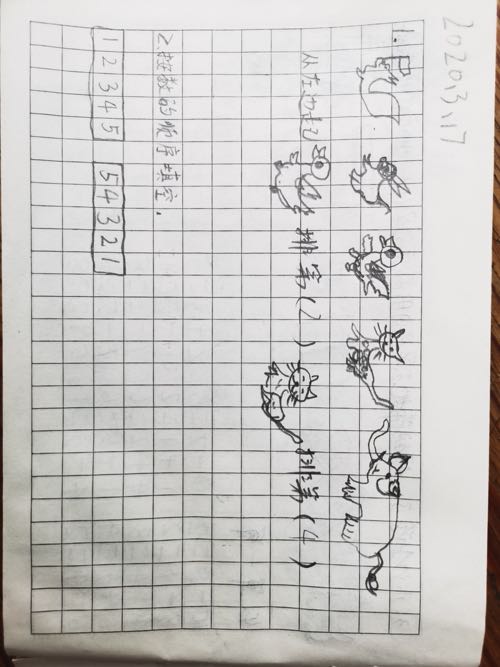 2020.3.17
1.
从左边起 排第(2) 排第(4)
2.按数的顺序填空.
1 2 3 4 5 5 4 3 2 1